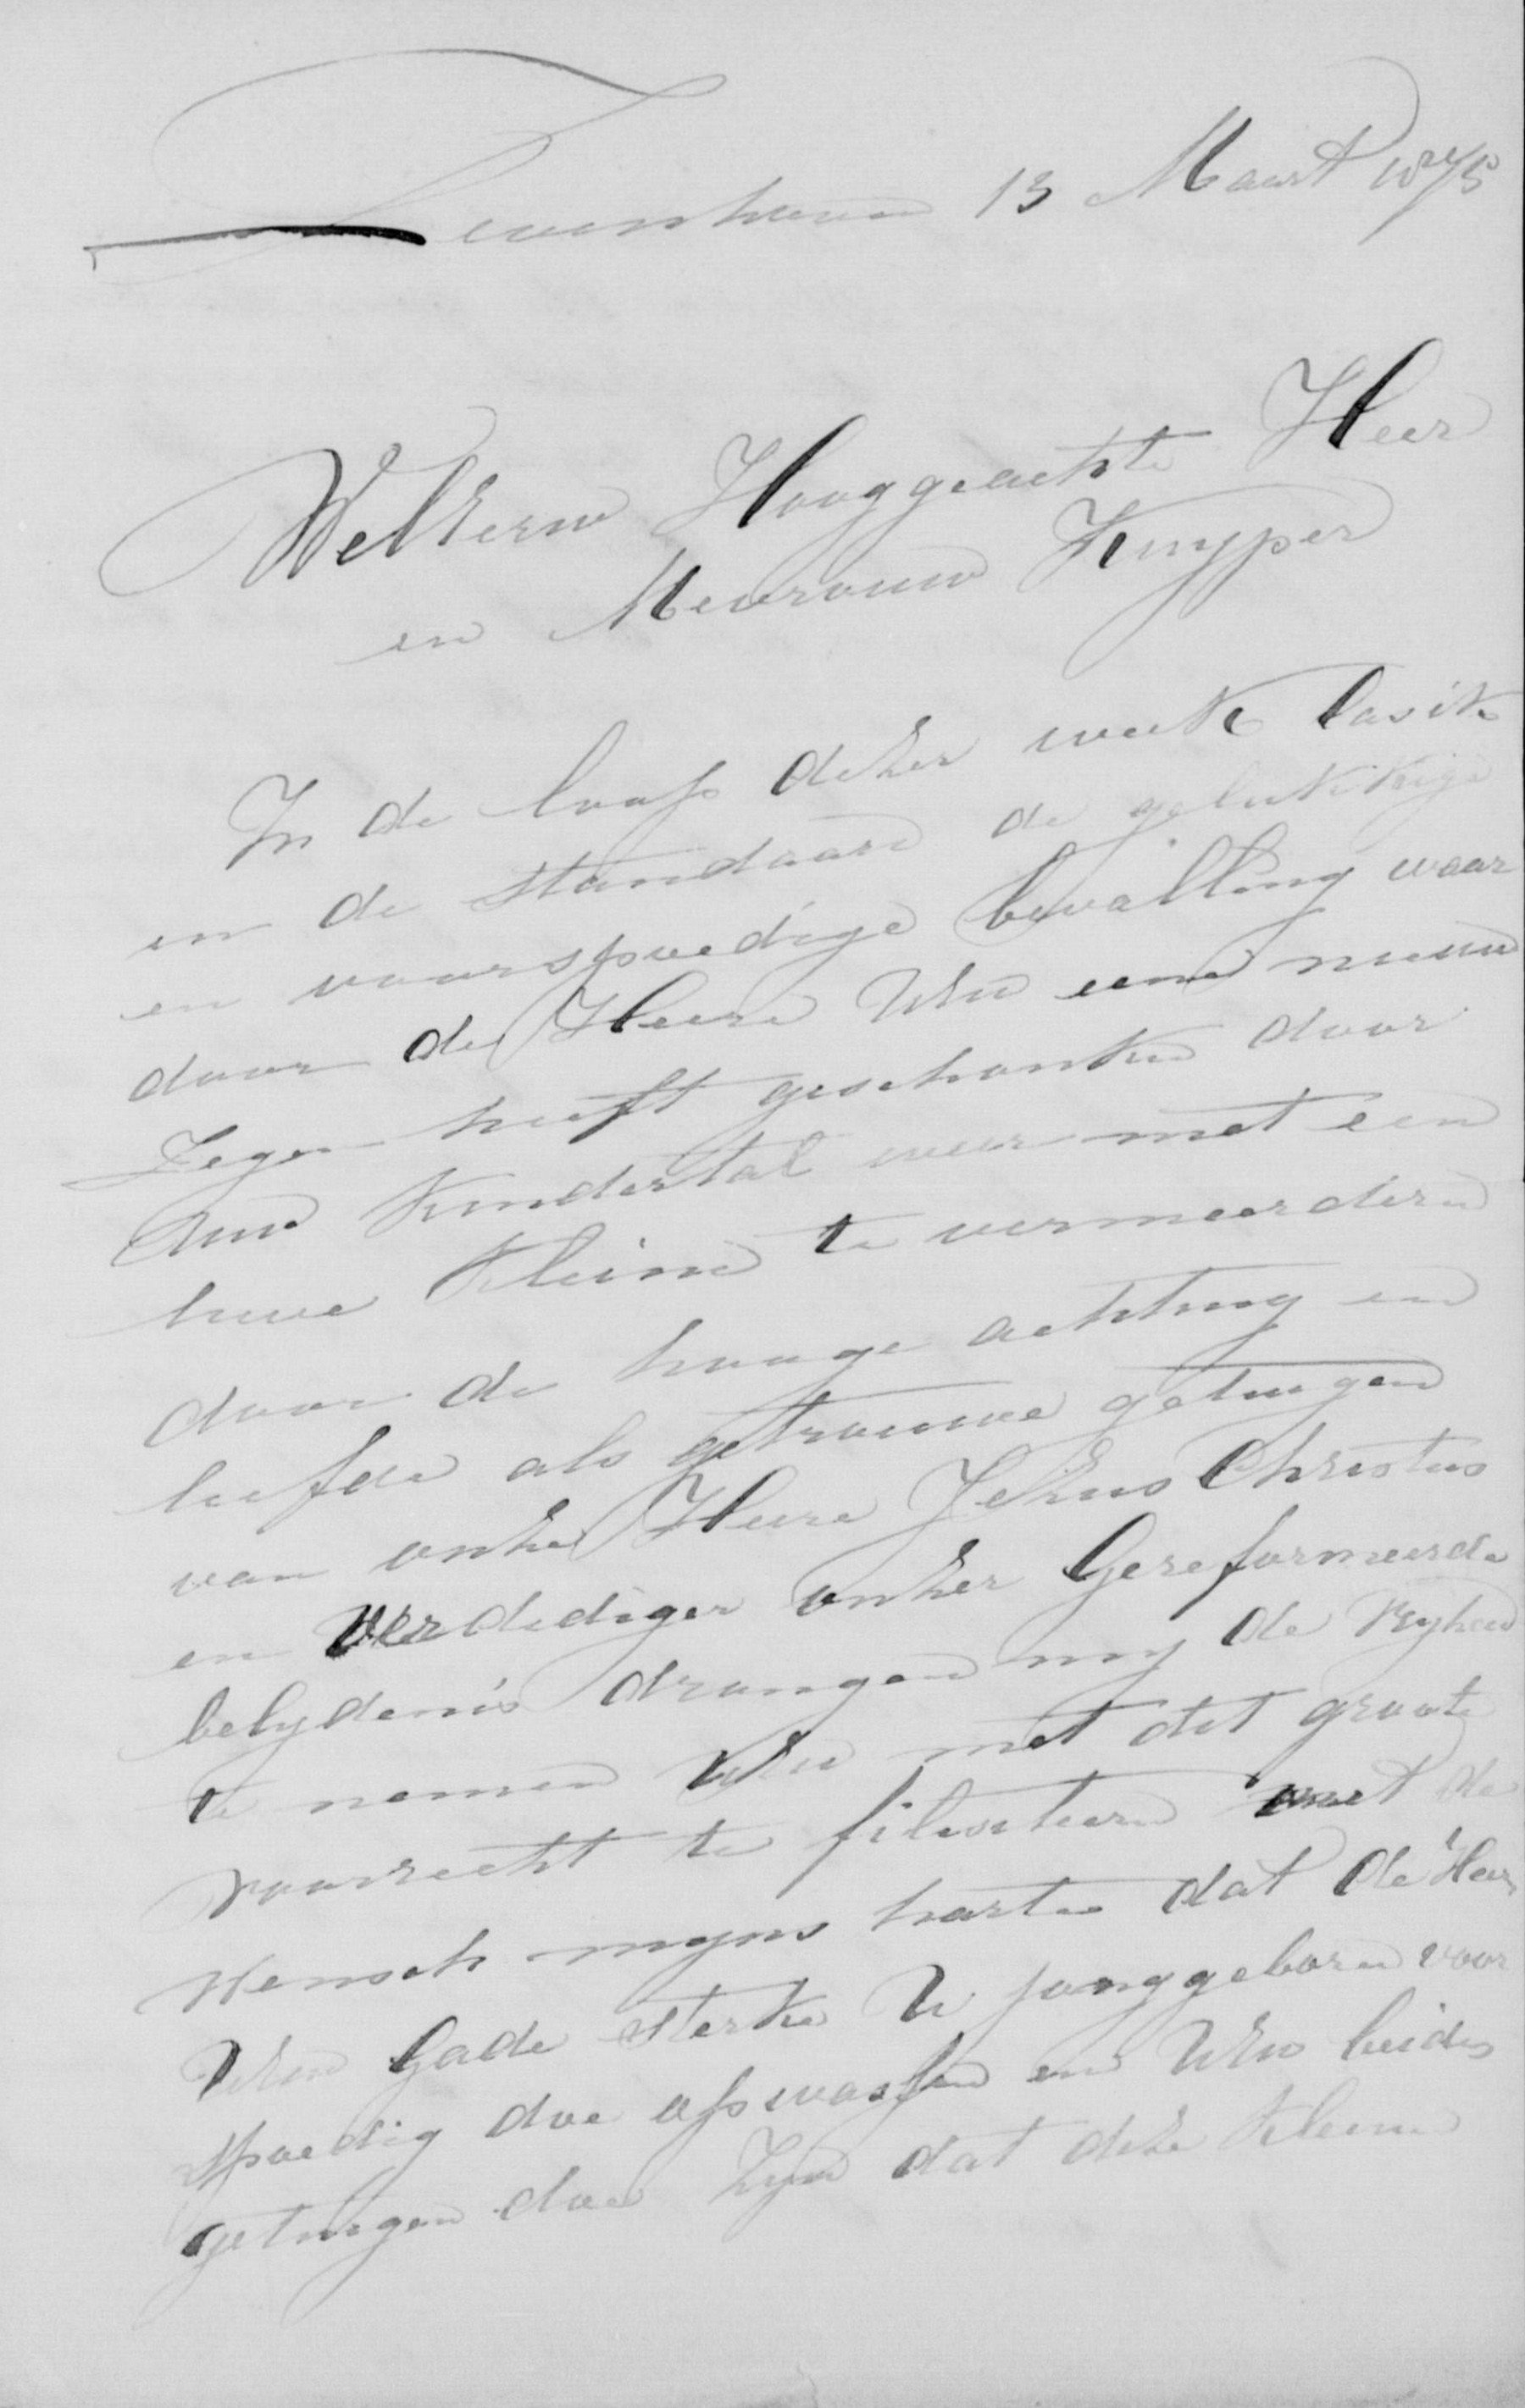 Zevenhuven 13 Maart 1875
WelEerw Hooggeachte Heer
en Mevrouw Kuyper
In de loop dezer week las ik
in de standaard de gelukkige
en voorspoedige bevalling waar
door de Heere UEw een nieuw
Zegen heeft geschonken door
Uw kindertal weer met een
lieve kleine te vermeerderen
door de hooge achting en
liefde als getrouwe getuigen
van onze Heere Jezus Christus
en verdediger onzer Gereformeerde
belydenis drongen my de vryheid
te nemen UEw met dit groote
voorrecht te filiciteeren met de
Wensch myns harten dat de Heer
UEw Gade sterke U jonggeboren voor
spoedig doe opwassen en UEw beides
getuigen doe zyn dat deze kleine